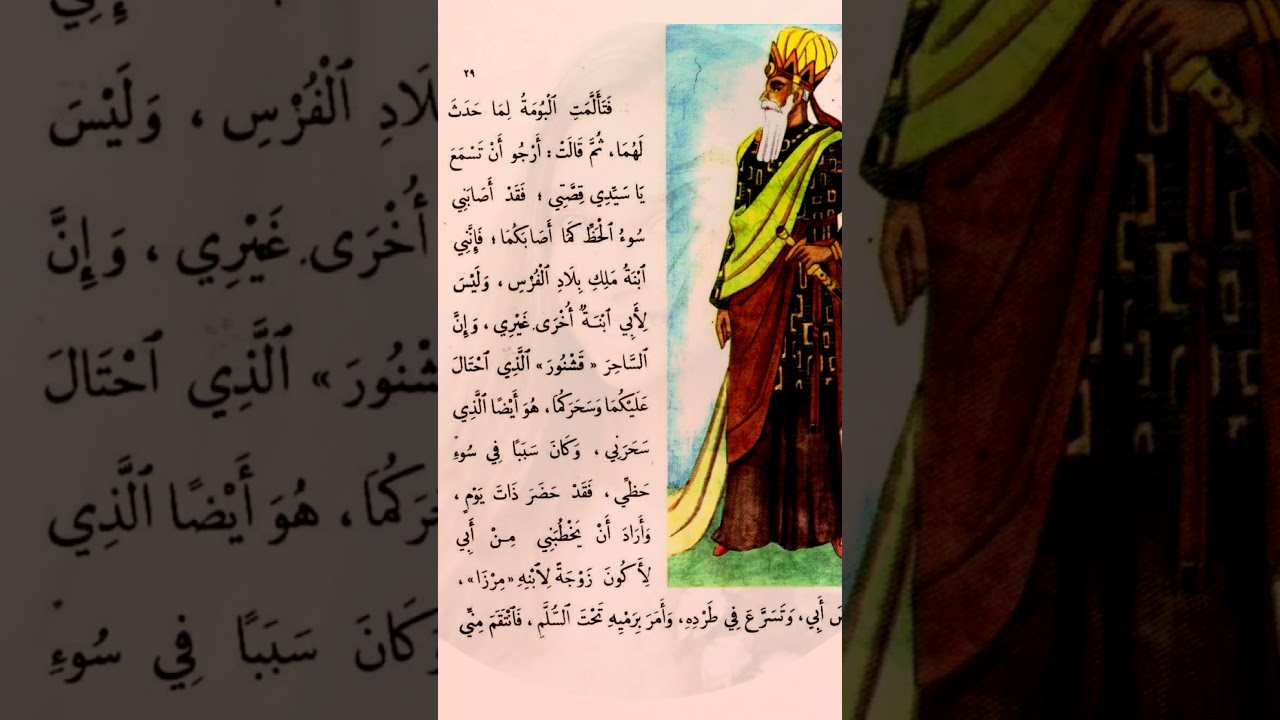 ٢٩
فَتَأَلَّمَتِ ٱلْبُومَةُ لِمَا حَدَثَ
لَهُمَا، ثُمَّ قَالَتْ: أَرْجُو أَنْ تَسْمَعَ
يَا سَيِّدِي قِصَّتِي ؛ فَقَدْ أَصَابَنِي
سُوءُ ٱلْحَظِّ كَمَا أَصَابَكُمَا ؛ فَإِنَّنِي
ٱبْنَةُ مَلِكِ بِلَادِ ٱلْفُرْسِ ، وَلَيْسَ
لِأَبِي ٱبْنَةٌ أُخْرَى غَيْرِي ، وَإِنَّ
ٱلسَّاحِرَ « قَشْنُورَ » ٱلَّذِي ٱحْتَالَ
عَلَيْكُمَا وَسَحَرَكُمَا ، هُوَ أَيْضًا ٱلَّذِي
سَحَرَنِي ، وَكَانَ سَبَبًا فِي سُوءِ
حَظِّي ، فَقَدْ حَضَرَ ذَاتَ يَوْمٍ ،
وَأَرَادَ أَنْ يَخْطُبَنِي مِنْ أَبِي
لِأَكُونَ زَوْجَةً لِٱبْنِهِ «مِرْزَا» ،
أَبِي ، وَتَسَرَّعَ فِي طَرْدِهِ ، وَأَمَرَ بِرَمْيِهِ تَحْتَ ٱلسُّلَّمِ ، فَٱنْتَقَمَ مِنِّي